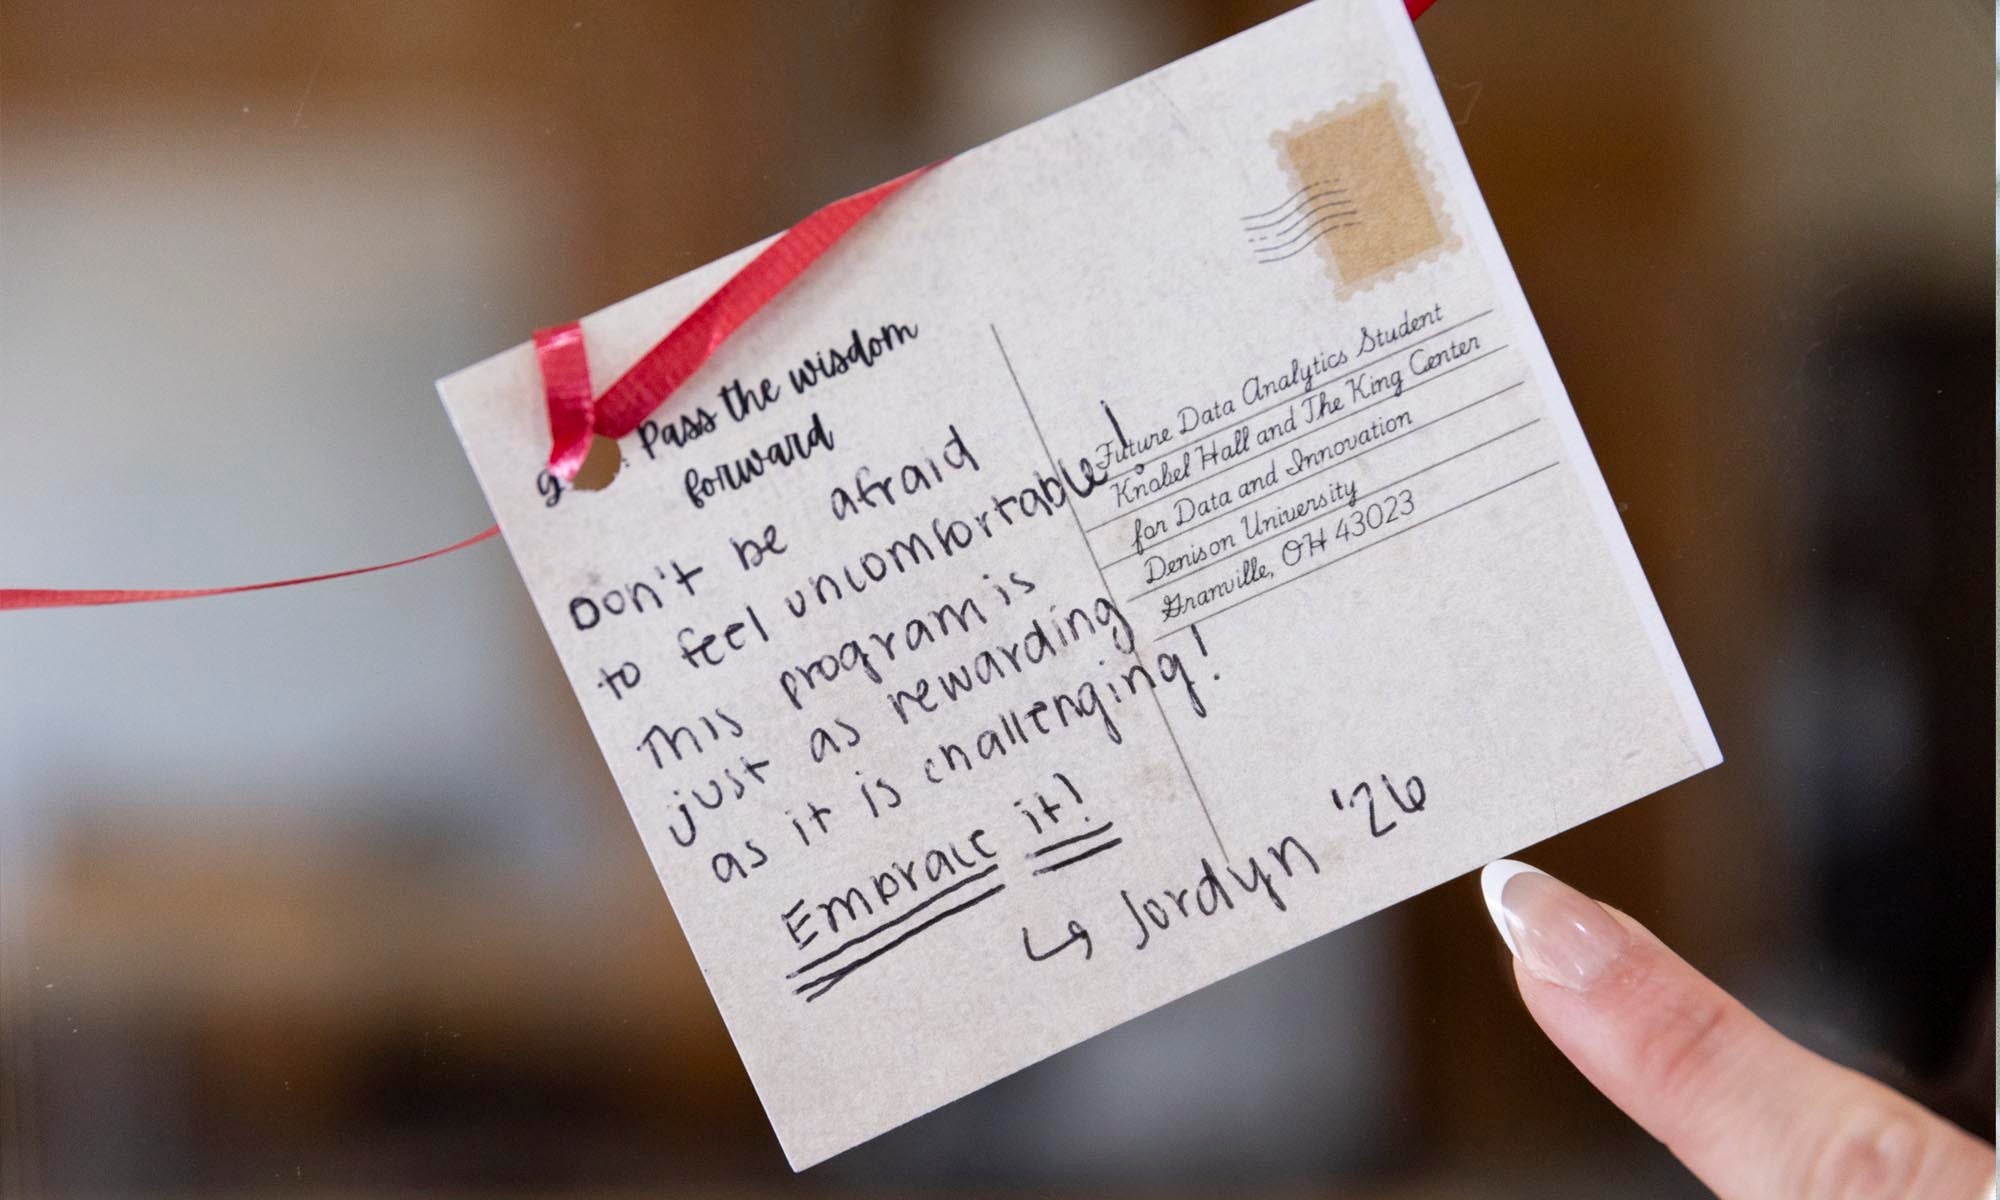 Pass the wisdom
forward
Don't be afraid
to feel uncomfortable!
This program is
just as rewarding
as it is challenging!
Embrace it!
↳ Jordyn '26
Future Data Analytics Student
Knobel Hall and The King Center
for Data and Innovation
Denison University
Granville, OH 43023